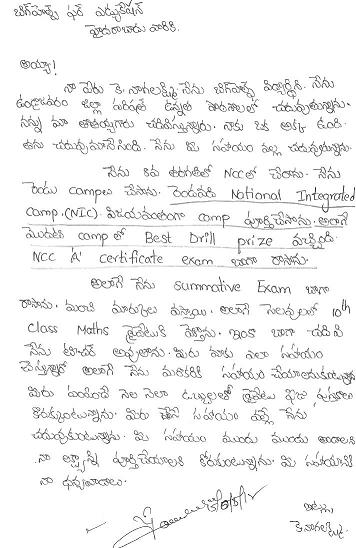 బిగ్‌హెల్ప్ ఫర్ ఎడ్యుకేషన్
హైదరాబాదు వారికి.
అయ్యా!
నా పేరు కె. నాగలక్ష్మి నేను బిగ్‌హెల్ప్ విద్యార్థిని. నేను
జిల్లా పరిషత్ ఉన్నత పాఠశాలలో చదువుతున్నాను.
నన్ను మా తాతయ్యగారు చదివిస్తున్నారు. నాకు ఒక అక్క ఉంది.
తను చదువు మానేసింది. నేను మీ సహాయం వల్ల చదువుతున్నాను.
నేను 8వ తరగతిలో NCCలో చేరాను. నేను
రెండు campలు చేసాను. రెండవది National Integrated
camp.(NIC). విజయవంతంగా camp పూర్తిచేసాను. అలాగే
మొదటి camp లో Best Drill prize వచ్చింది.
NCC 'A' certificate exam బాగా రాసాను.
అలాగే నేను summative Exam బాగా
రాసాను. మంచి మార్కులు వచ్చాయి. అలాగే సెలవుల్లో 10th
class Maths ప్రైవేటుకి వెళ్తాను. ఇంకా బాగా చదివి
నేను టీచర్ అవుతాను. మీరు నాకు ఎలా సహాయం
చేస్తున్నారో అలాగే నేను మరొకరికి సహాయం చేయాలనుకుంటున్నాను
మీరు పంపించే నెల నెలా డబ్బులతో ప్రైవేటు ఫీజు పుస్తకాలు
కొనుక్కుంటున్నాను. మీరు చేసే సహాయం వల్లే నేను
చదువుకుంటున్నాను. మీ సహాయం ముందు ముందు ఉండాలని
నా లక్ష్యాన్ని పూర్తిచేయాలని కోరుకుంటున్నాను. మీ సహాయానికి
నా ధన్యవాదాలు.
ఇట్లు,
కె. నాగలక్ష్మి.